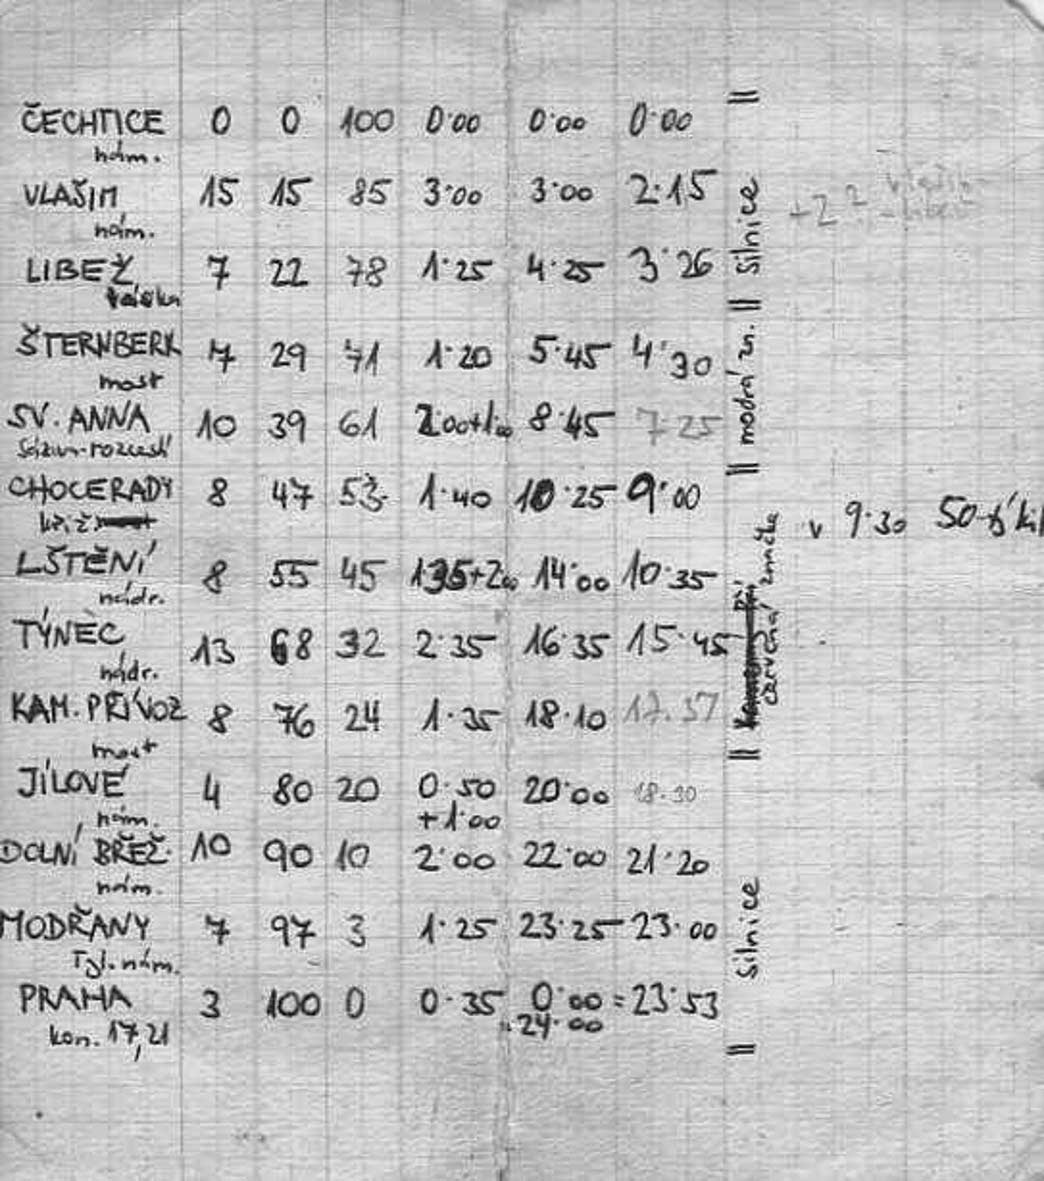 ČECHTICE 0 0 100 0·00 0·00 0·00
nám.
VLAŠIM 15 15 85 3·00 3·00 2·15
nám.
LIBEŽ 7 22 78 1·25 4·25 3·26
ŠTERNBERK 7 29 71 1·20 5·45 4·30
most
SV. ANNA 10 39 61 2·00+1·00 8·45 7·25
rozcestí
CHOCERADY 8 47 53 1·40 10·25 9·00
kříž
LŠTĚNÍ 8 55 45 1·35+2·00 14·00 10·35
nádr.
TÝNEC 13 68 32 2·35 16·35 15·45
nádr.
KAM. PŘÍVOZ 8 76 24 1·35 18·10 17.37
most
JÍLOVÉ 4 80 20 0·50 20·00 18·30
nám. +1·00
DOLNÍ BŘEŽ. 10 90 10 2·00 22·00 21·20
nám.
MODŘANY 7 97 3 1·25 23·25 23·00
Tyl. nám.
PRAHA 3 100 0 0·35 0·00 = 23·53
kon. 17, 21 = 24·00
silnice
modrá zn.
červená značka
silnice
+2?
v 9·30 50-tý kil